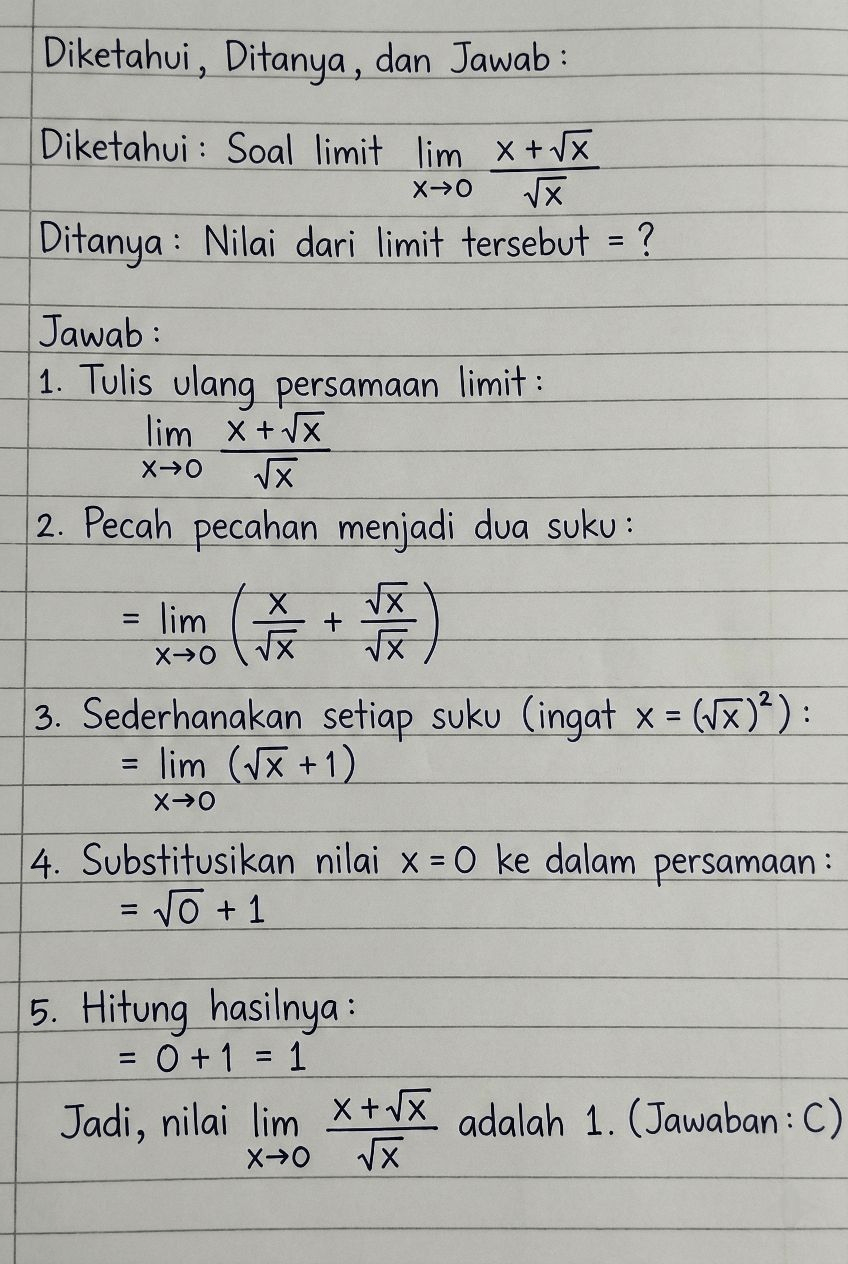 Diketahui, Ditanya, dan Jawab :
Diketahui : Soal limit lim x→0 (x + √x)/√x
Ditanya : Nilai dari limit tersebut = ?
Jawab :
1. Tulis ulang persamaan limit :
lim x→0 (x + √x)/√x
2. Pecah pecahan menjadi dua suku :
= lim x→0 (x/√x + √x/√x)
3. Sederhanakan setiap suku (ingat x = (√x)²) :
= lim x→0 (√x + 1)
4. Substitusikan nilai x = 0 ke dalam persamaan :
= √0 + 1
5. Hitung hasilnya :
= 0 + 1 = 1
Jadi, nilai lim x→0 (x + √x)/√x adalah 1. (Jawaban : C)